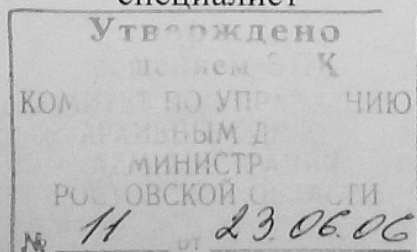 специалист
Утверждено
решением ЭПК
КОМИТЕТ ПО УПРАВЛЕНИЮ
АРХИВНЫМ
АДМИНИСТРАЦИИ
РОСТОВСКОЙ ОБЛАСТИ
№ 11 от 23.06.06